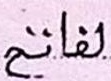 لفاتح